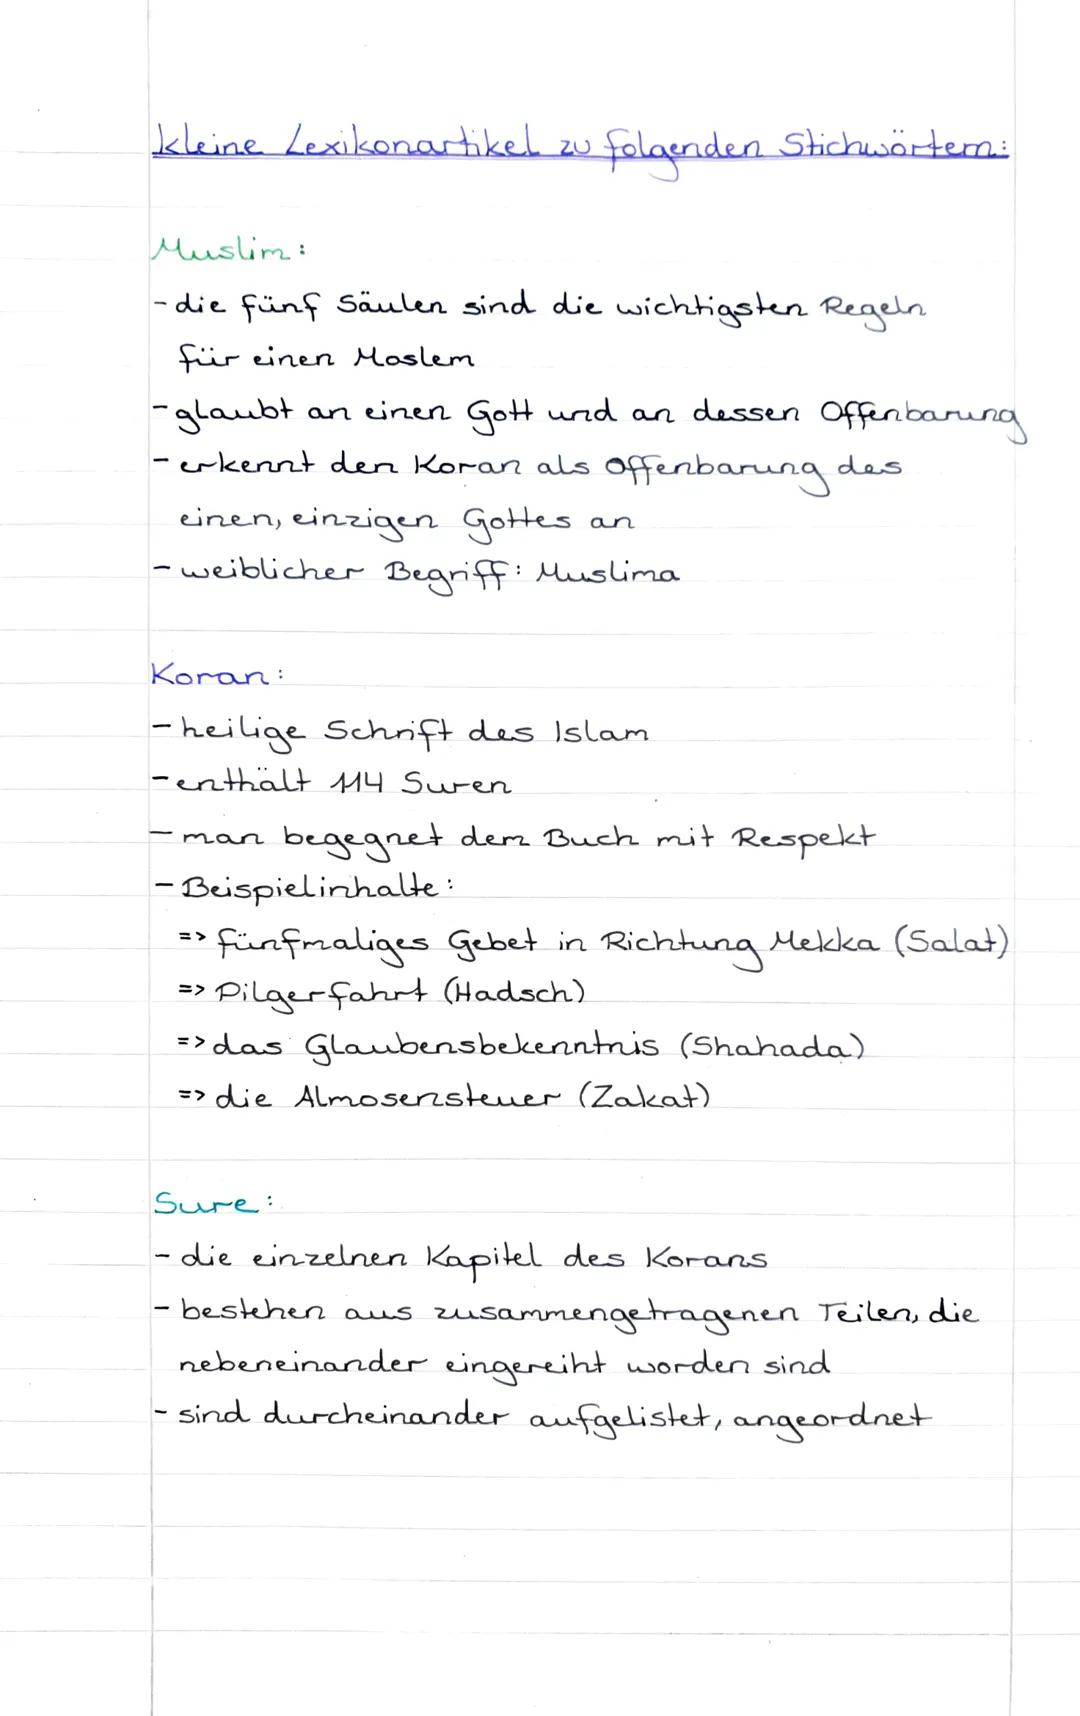 kleine Lexikonartikel zu folgenden Stichwörtern:
Muslim:
- die fünf Säulen sind die wichtigsten Regeln
für einen Moslem
- glaubt an einen Gott und an dessen Offenbarung
- erkennt den Koran als Offenbarung des
einen, einzigen Gottes an
- weiblicher Begriff: Muslima
Koran:
- heilige Schrift des Islam
- enthält 114 Suren
- man begegnet dem Buch mit Respekt
- Beispielinhalte:
=> fünfmaliges Gebet in Richtung Mekka (Salat)
=> Pilgerfahrt (Hadsch)
=> das Glaubensbekenntnis (Shahada)
=> die Almosensteuer (Zakat)
Sure:
- die einzelnen Kapitel des Korans
- bestehen aus zusammengetragenen Teilen, die
nebeneinander eingereiht worden sind
- sind durcheinander aufgelistet, angeordnet